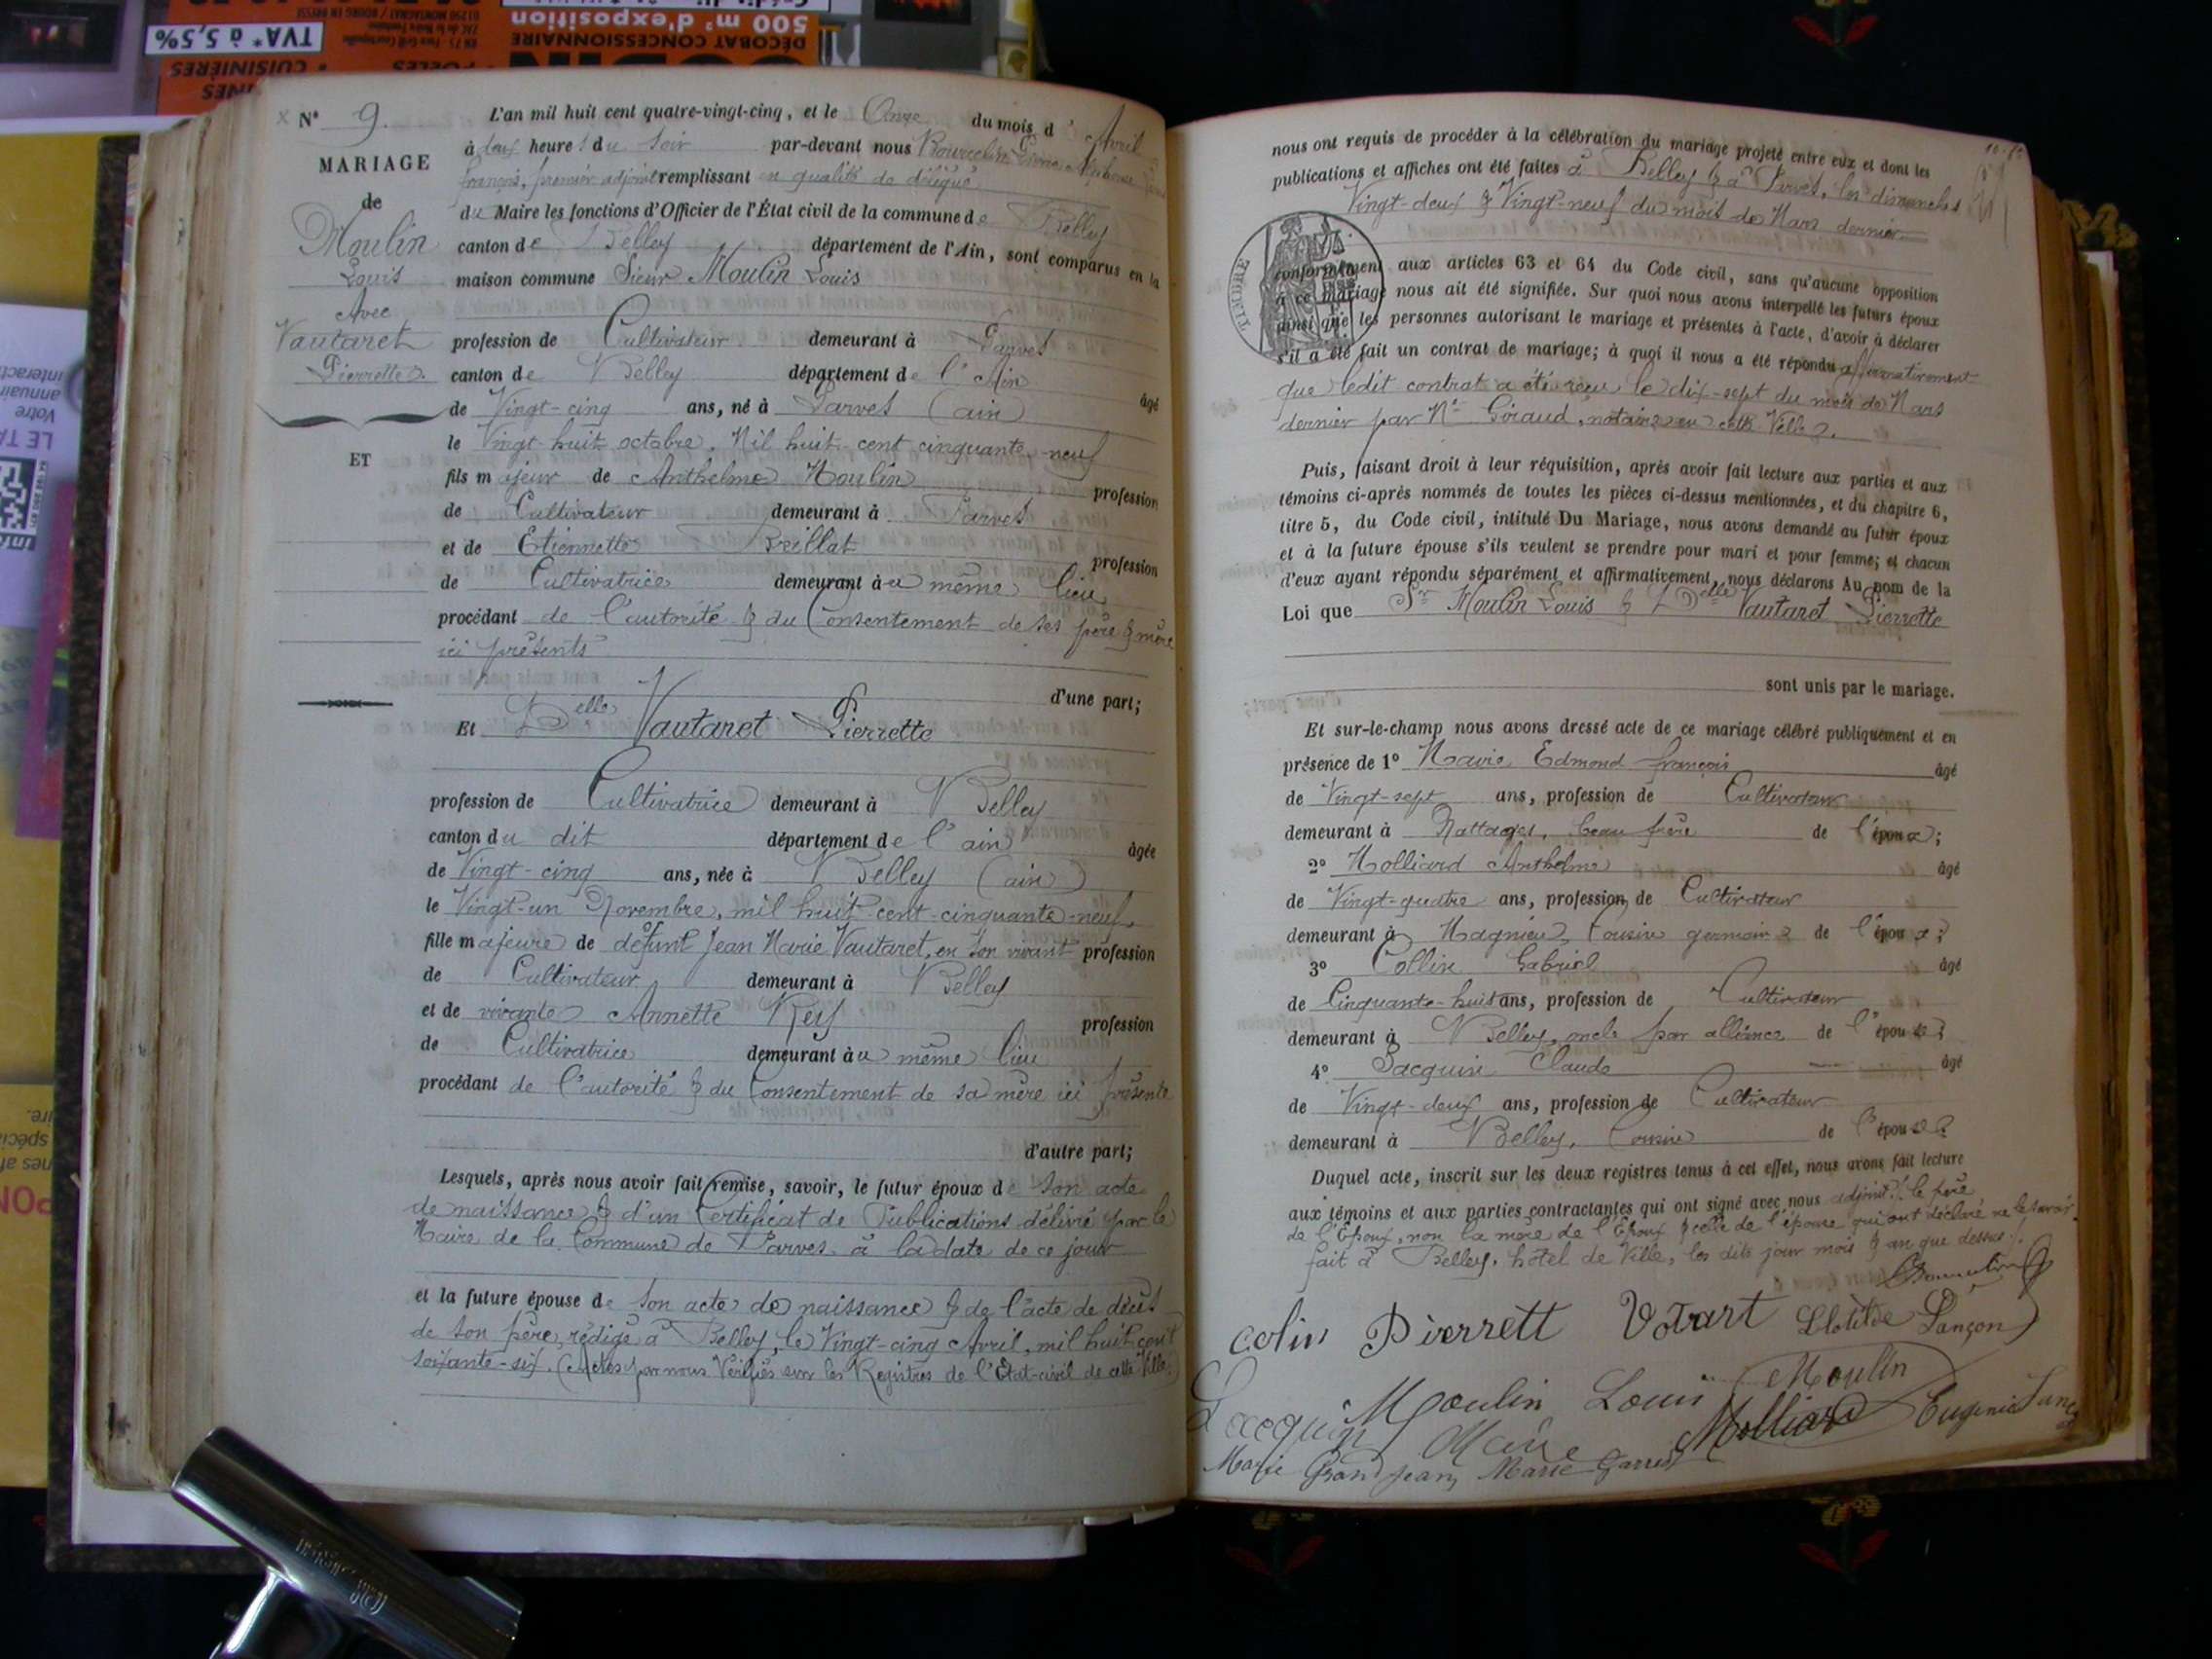 N° 9.
MARIAGE
de
Moulin
Louis
Avec
Vautaret
Pierrette
ET
L'an mil huit cent quatre-vingt-cinq, et le Onze du mois d'Avril
à deux heures du soir par-devant nous
françois, premier adjoint remplissant en qualité de délégué
du Maire les fonctions d'Officier de l'État civil de la commune de Belley
canton de Belley département de l'Ain, sont comparus en la
maison commune Sieur Moulin Louis
profession de Cultivateur demeurant à Parves
canton de Belley département de l'Ain âgé
de Vingt-cinq ans, né à Parves (ain)
le Vingt-huit octobre, Mil huit-cent cinquante-neuf
fils majeur de Anthelme Moulin profession
de Cultivateur demeurant à Parves
et de Etiennette Brillat profession
de Cultivatrice demeurant au même lieu
procédant de l'autorité & du Consentement de ses père & mère
ici présents
d'une part;
Et Delle Vautaret Pierrette
profession de Cultivatrice demeurant à Belley
canton du dit département de l'ain âgée
de Vingt-cinq ans, née à Belley (ain)
le Vingt-un Novembre, mil huit-cent-cinquante-neuf,
fille majeure de défunt Jean Marie Vautaret, en son vivant profession
de Cultivateur demeurant à Belley
et de vivante Annette Rey profession
de Cultivatrice demeurant au même lieu
procédant de l'autorité & du Consentement de sa mère ici présente
d'autre part;
Lesquels, après nous avoir fait remise, savoir, le futur époux de son acte
de naissance & d'un Certificat de Publications délivré par le
Maire de la Commune de Parves à la date de ce jour
et la future épouse de son acte de naissance & de l'acte de décès
de son père, rédigé à Belley, le Vingt-cinq Avril, mil huit cent
soixante-six (Actes par nous Vérifiés sur les Registres de l'État-civil de cette Ville)
nous ont requis de procéder à la célébration du mariage projeté entre eux et dont les
publications et affiches ont été faites à Belley & à Parves, les dimanches
Vingt-deux & Vingt-neuf du mois de Mars dernier
TIMBRE
conformément aux articles 63 et 64 du Code civil, sans qu'aucune opposition
à ce mariage nous ait été signifiée. Sur quoi nous avons interpellé les futurs époux
ainsi que les personnes autorisant le mariage et présentes à l'acte, d'avoir à déclarer
s'il a été fait un contrat de mariage; à quoi il nous a été répondu affirmativement
que ledit contrat a été reçu le dix-sept du mois de Mars
dernier par Me Giraud, notaire en cette Ville.
Puis, faisant droit à leur réquisition, après avoir fait lecture aux parties et aux
témoins ci-après nommés de toutes les pièces ci-dessus mentionnées, et du chapitre 6,
titre 5, du Code civil, intitulé Du Mariage, nous avons demandé au futur époux
et à la future épouse s'ils veulent se prendre pour mari et pour femme; et chacun
d'eux ayant répondu séparément et affirmativement, nous déclarons Au nom de la
Loi que Sr Moulin Louis & Delle Vautaret Pierrette
sont unis par le mariage.
Et sur-le-champ nous avons dressé acte de ce mariage célébré publiquement et en
présence de 1° Edmond françois âgé
de Vingt-sept ans, profession de Cultivateur
demeurant à Nattages, beau frère de l'époux;
2° Molliard Anthelme âgé
de Vingt-quatre ans, profession de Cultivateur
demeurant à Magnieu, Cousin germain de l'époux;
3° Collin Gabriel âgé
de Cinquante-huit ans, profession de Cultivateur
demeurant à Belley, oncle par alliance de l'épouse;
4° Jacquin Claude âgé
de Vingt-deux ans, profession de Cultivateur
demeurant à Belley, Cousin de l'épouse
Duquel acte, inscrit sur les deux registres tenus à cet effet, nous avons fait lecture
aux témoins et aux parties contractantes qui ont signé avec nous adjoint & le père
de l'Époux, non la mère de l'Époux & celle de l'épouse qui ont déclaré ne le savoir.
fait à Belley, hôtel de Ville, les dits jour mois & an que dessus.
colin Pierrett Votart Clotilde Lançon
Jacquin Moulin Louis Moulin
Molliard Eugenie
Marie Grand Jean
DÉCOBAT CONCESSIONNAIRE
500 m² d'exposition
TVA* à 5,5%
CUISINIÈRES